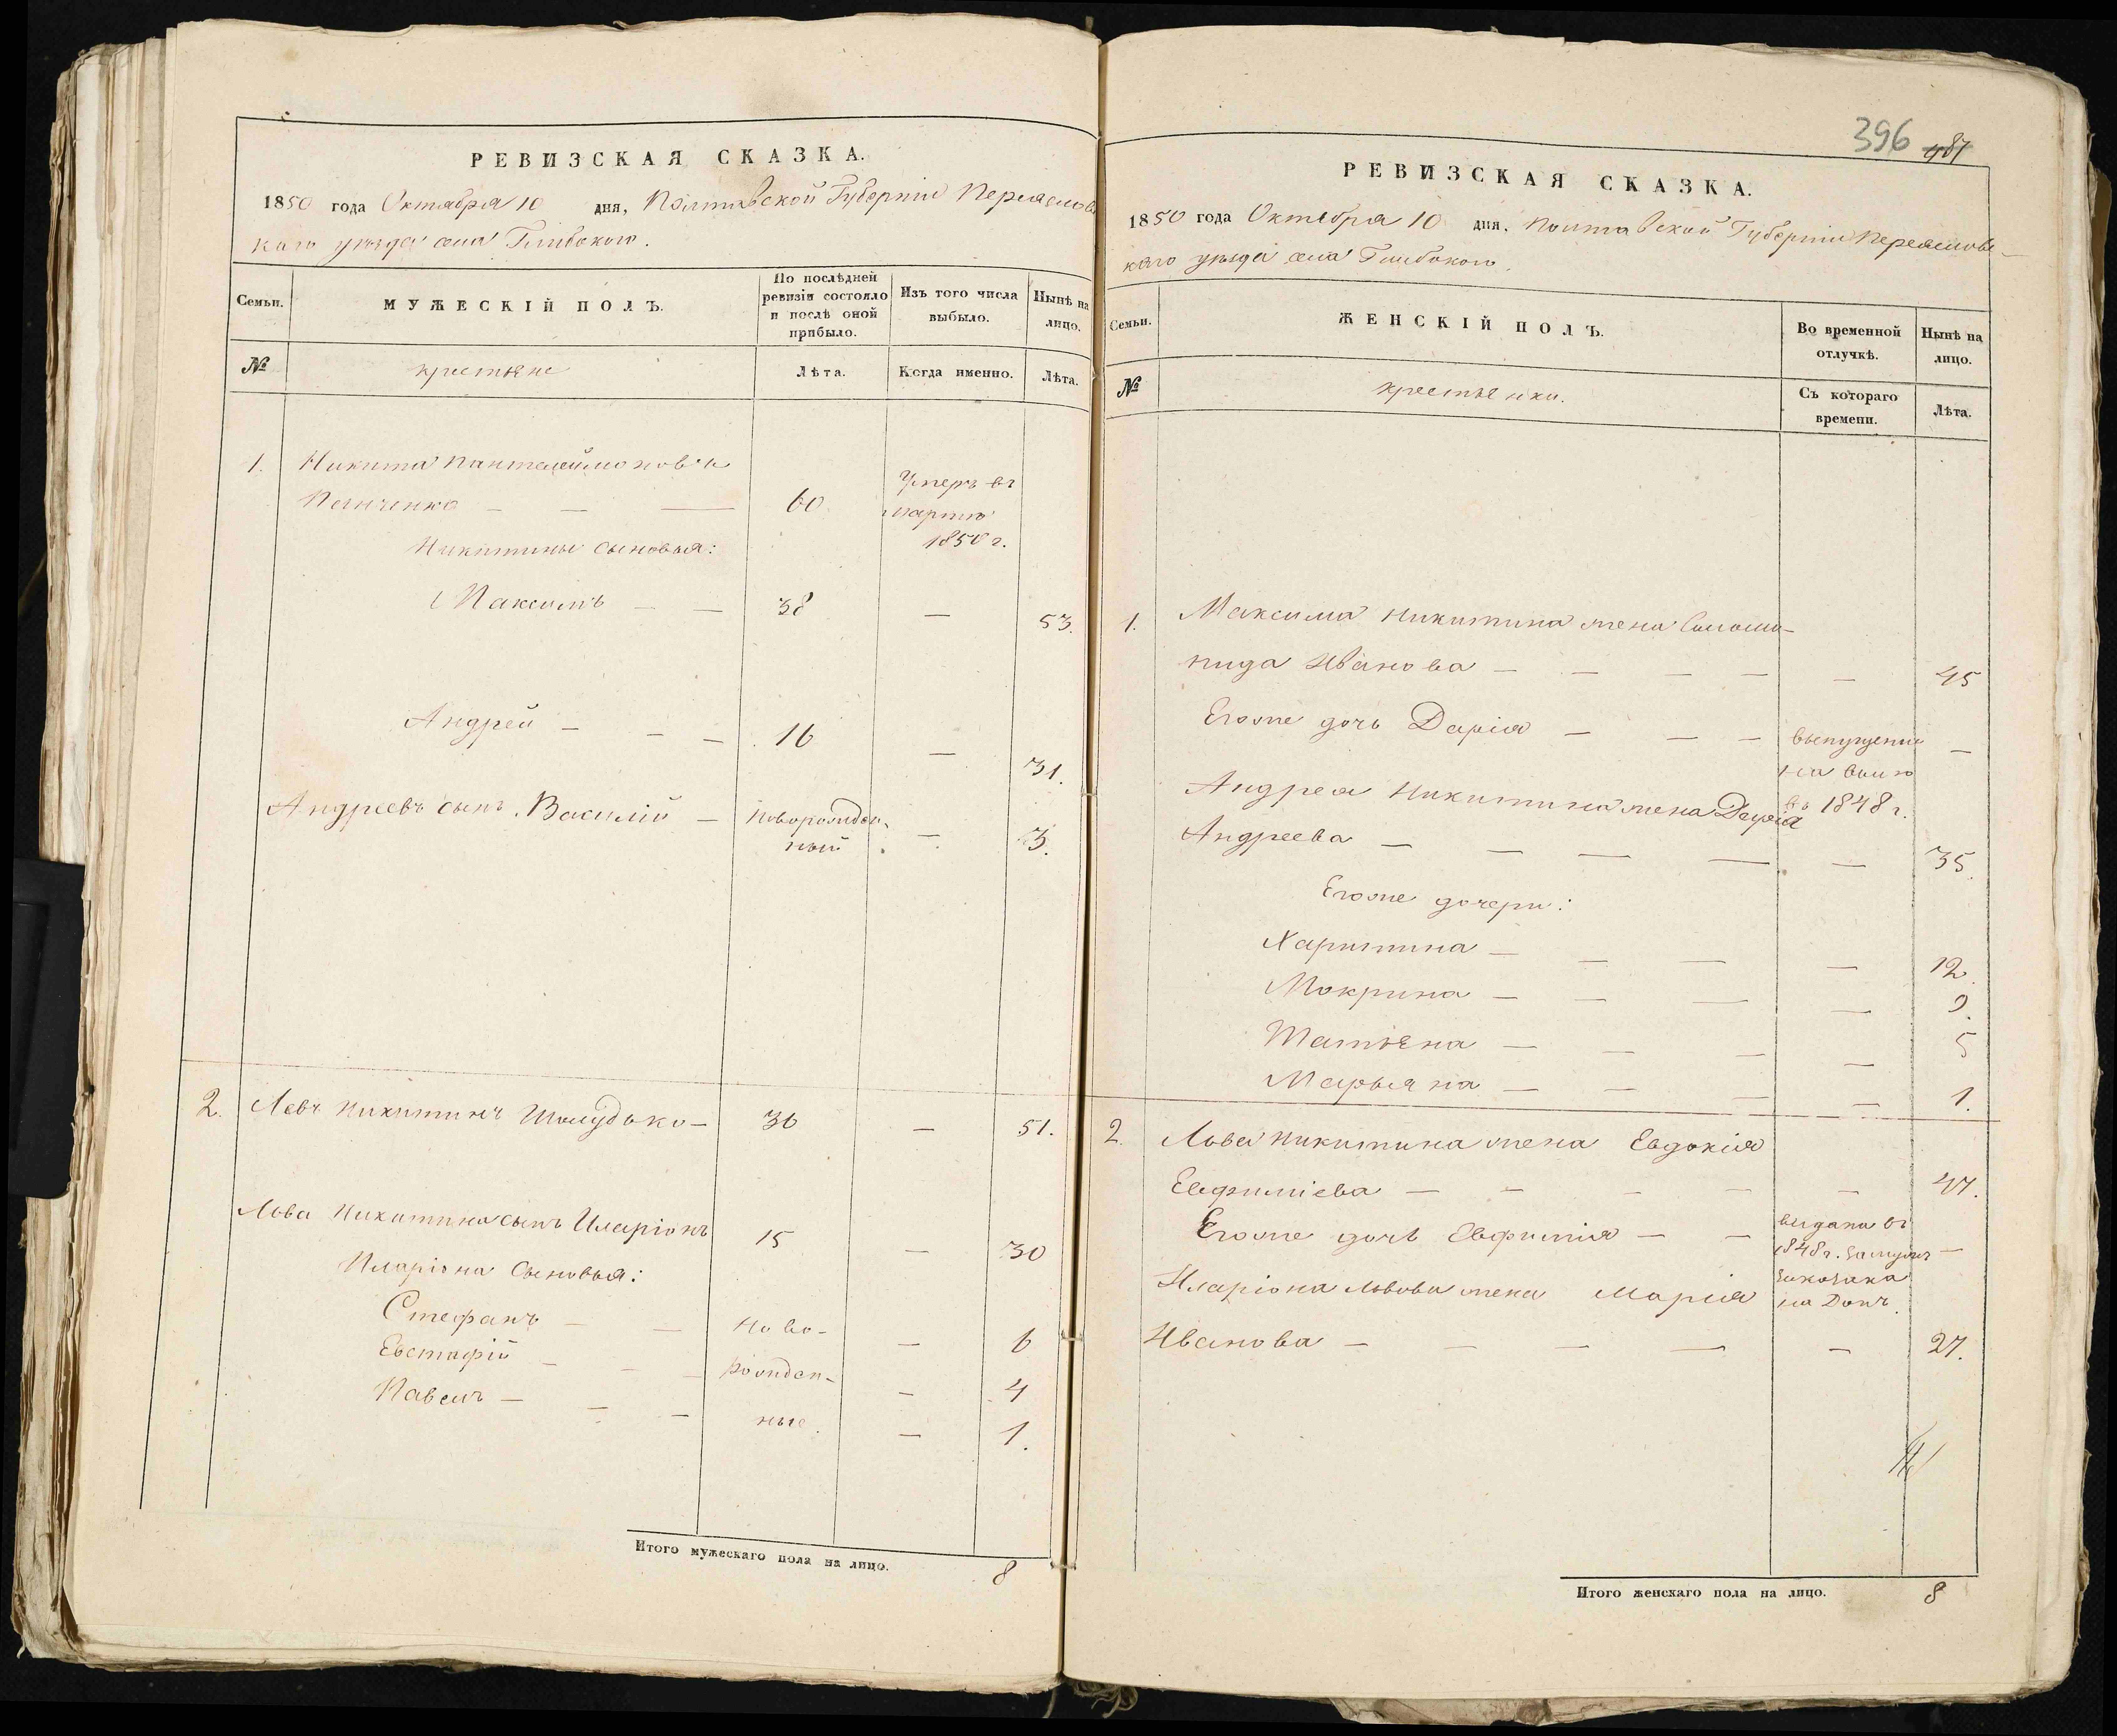 РЕВИЗСКАЯ СКАЗКА.
1850 года Октября 10 дня, Полтавской Губерніи Переяслов
каго уѣзда села Глибокого.
Семьи.
МУЖЕСКІЙ ПОЛЪ.
По послѣдней
ревизіи состояло
и послѣ оной
прибыло.
Изъ того числа
выбыло.
Нынѣ на
лицо.
№
крестьяне
Лѣта.
Когда именно.
Лѣта.
1. Никита Пантелеймоновъ
60 Умеръ въ
мартѣ
1850 г.
Никитины сыновья:
Максимъ — — 38 — 53.
Андрей — — — 16 — 31.
Андреевъ сынъ Василій — новорожден-
ный — 3.
2. Левъ Никитинъ Шолудько — 36 — 51.
Лова Никитина сынъ Иларіонъ 15 — 30
Иларіона сыновья:
Стефанъ — — Ново- — 6
Евстафій — — — рожден- — 4
Павелъ — — — ные. — 1.
Итого мужескаго пола на лицо. 8
396 487
РЕВИЗСКАЯ СКАЗКА.
1850 года Октября 10 дня. Полтавской Губерніи Переяслов-
каго уѣзда села Глибокого.
Семьи.
ЖЕНСКІЙ ПОЛЪ.
Во временной
отлучкѣ.
Нынѣ на
лицо.
№
крестьянки.
Съ котораго
времени.
Лѣта.
1. Максима Никитина жена Соломо-
нида Иванова — — — — — 45
Егоже дочь Дарія — — — выпущена —
на волю
въ 1848 г.
Андрея Никитина жена Дарія
Андреева — — — — — 35.
Егоже дочери:
Харитина — — — — 12.
Мокрина — — — — 9.
Татьяна — — — — 5
Марьяна — — — — 1.
2. Лова Никитина жена Евдокія
Евфиміева — — — — — 47.
Егоже дочь Евфимія — — выдана въ
1848 г. замужъ —
за козака
на Донъ.
Иларіона Львова жена Марія
Иванова — — — — — 27.
Итого женскаго пола на лицо. 8